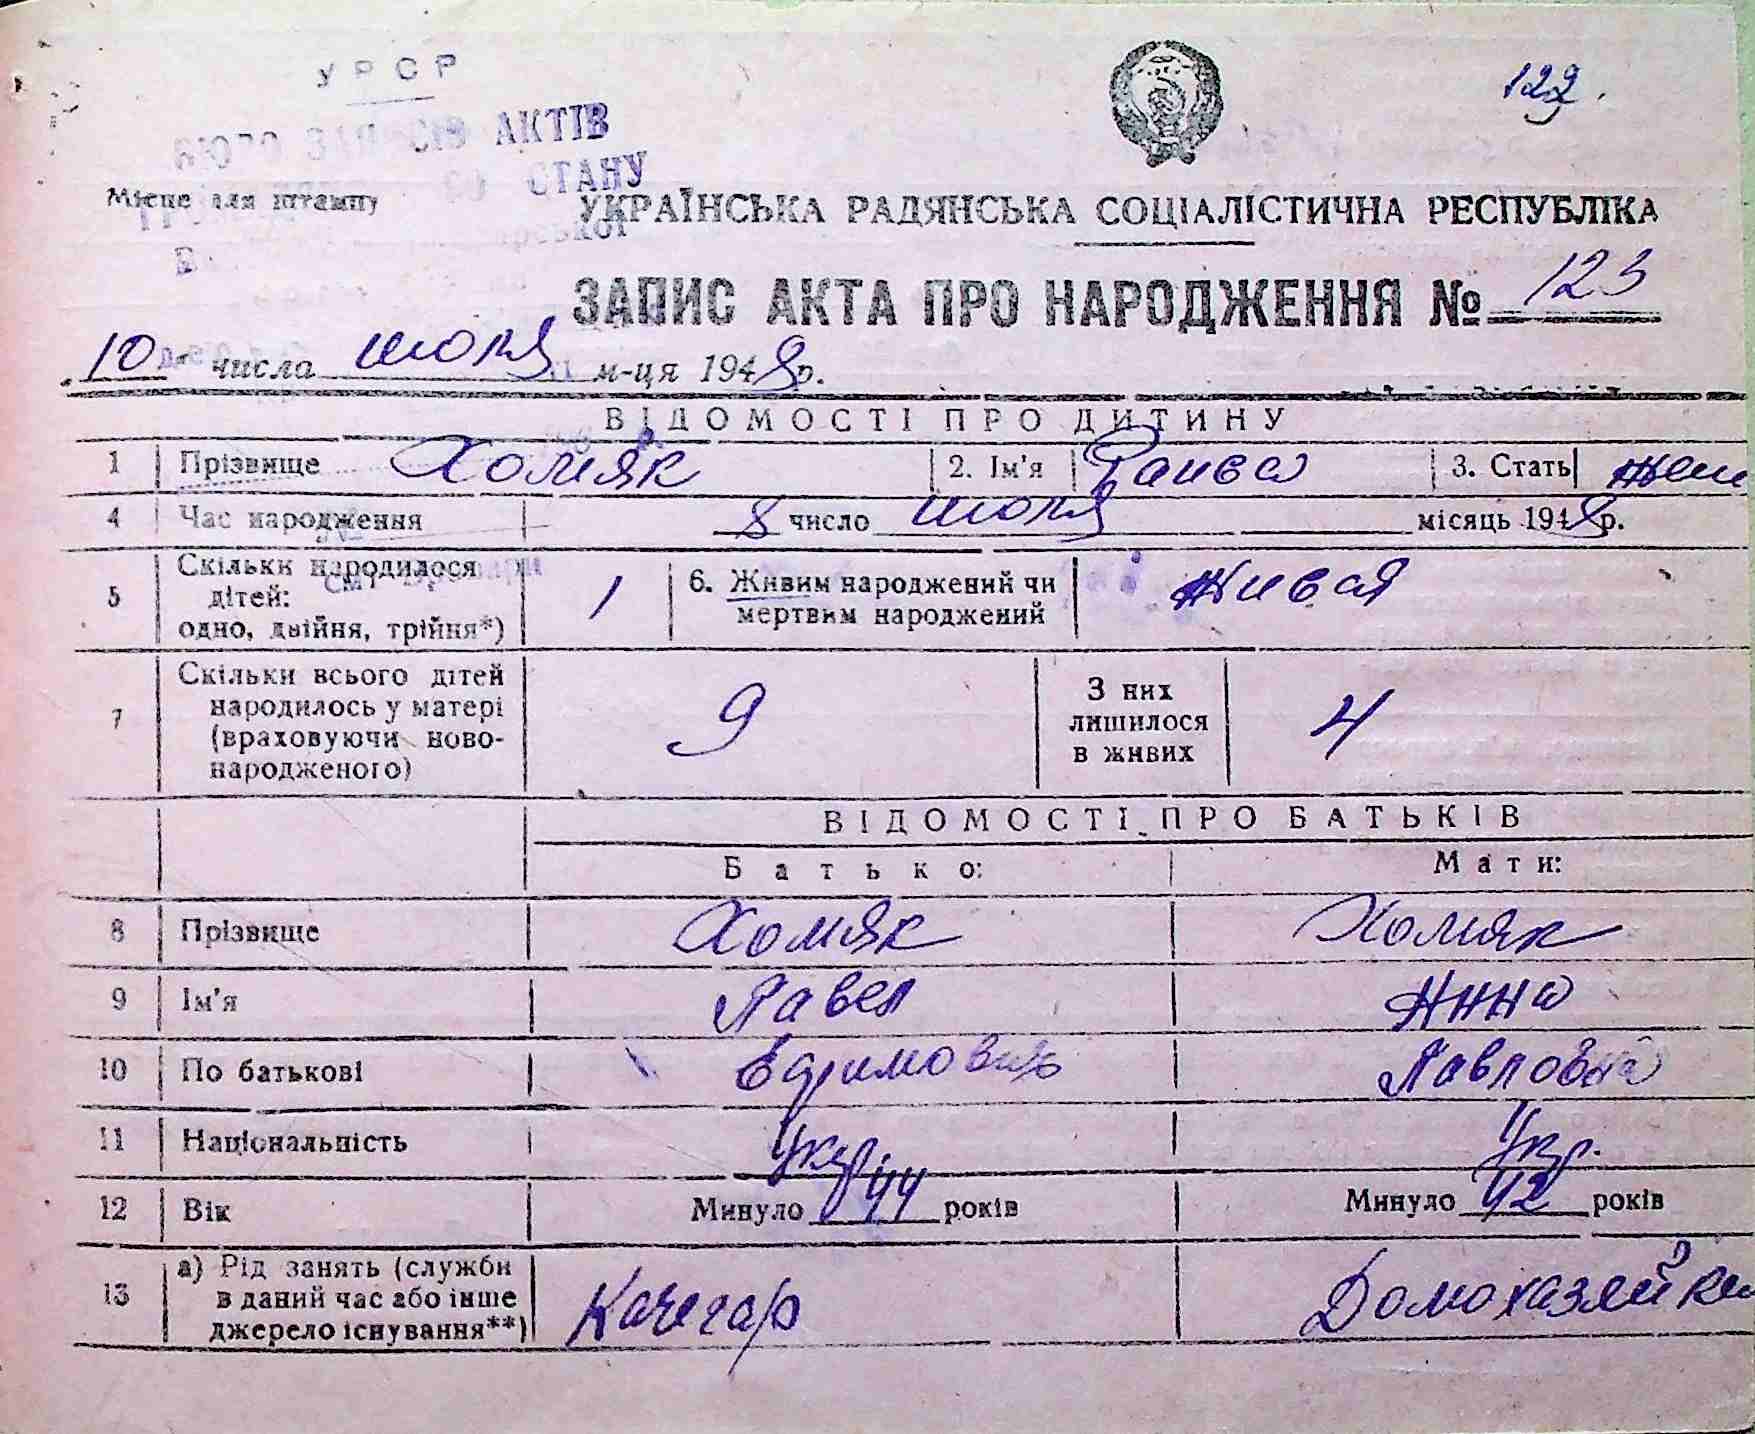 УРСР
122.
БЮРО ЗАПИСІВ АКТІВ
СТАНУ
Місце для штампу
УКРАЇНСЬКА РАДЯНСЬКА СОЦІАЛІСТИЧНА РЕСПУБЛІКА
ЗАПИС АКТА ПРО НАРОДЖЕННЯ № 123
10 числа июля м-ця 1948 р.
ВІДОМОСТІ ПРО ДИТИНУ
1 Прізвище Хомяк 2. Ім'я Раиса 3. Стать жен
4 Час народження 8 число июля місяць 1948 р.
5 Скільки народилося дітей: одно, двійня, трійня*) 1 6. Живим народжений чи мертвим народжений Живая
7 Скільки всього дітей народилось у матері (враховуючи ново-народженого) 9 З них лишилося в живих 4
ВІДОМОСТІ ПРО БАТЬКІВ
Батько: Мати:
8 Прізвище Хомяк Хомяк
9 Ім'я Павел Анна
10 По батькові Ефимович Павловна
11 Національність Укр. Укр.
12 Вік Минуло 44 років Минуло 42 років
13 а) Рід занять (служби в даний час або інше джерело існування**) Качегар Домохазяйка